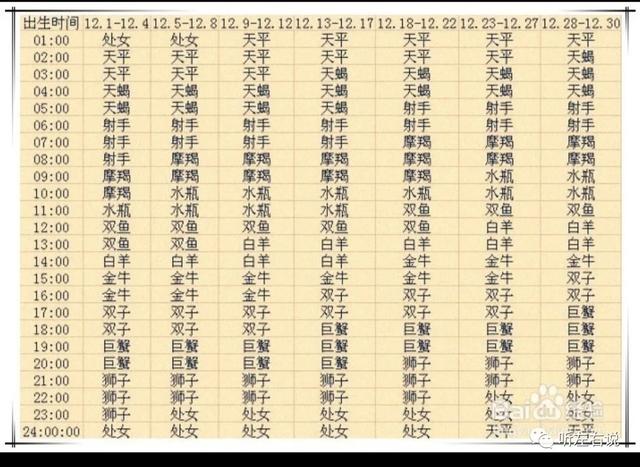 出生时间 12.1-12.4 12.5-12.8 12.9-12.12 12.13-12.17 12.18-12.22 12.23-12.27 12.28-12.30
01:00 处女 处女 天平 天平 天平 天平 天平
02:00 天平 天平 天平 天平 天平 天平 天蝎
03:00 天平 天平 天平 天蝎 天蝎 天蝎 天蝎
04:00 天蝎 天蝎 天蝎 天蝎 天蝎 天蝎 天蝎
05:00 天蝎 天蝎 天蝎 天蝎 射手 射手 射手
06:00 射手 射手 射手 射手 射手 射手 射手
07:00 射手 射手 射手 射手 摩羯 摩羯 摩羯
08:00 射手 摩羯 摩羯 摩羯 摩羯 摩羯 摩羯
09:00 摩羯 摩羯 摩羯 摩羯 摩羯 水瓶 水瓶
10:00 摩羯 水瓶 水瓶 水瓶 水瓶 水瓶 水瓶
11:00 水瓶 水瓶 水瓶 水瓶 双鱼 双鱼 双鱼
12:00 双鱼 双鱼 双鱼 双鱼 双鱼 白羊 白羊
13:00 双鱼 双鱼 白羊 白羊 白羊 白羊 白羊
14:00 白羊 白羊 白羊 白羊 金牛 金牛 金牛
15:00 金牛 金牛 金牛 金牛 金牛 金牛 双子
16:00 金牛 金牛 金牛 双子 双子 双子 双子
17:00 双子 双子 双子 双子 双子 双子 巨蟹
18:00 双子 双子 双子 巨蟹 巨蟹 巨蟹 巨蟹
19:00 巨蟹 巨蟹 巨蟹 巨蟹 巨蟹 巨蟹 巨蟹
20:00 巨蟹 巨蟹 巨蟹 巨蟹 狮子 狮子 狮子
21:00 狮子 狮子 狮子 狮子 狮子 狮子 狮子
22:00 狮子 狮子 狮子 狮子 狮子 处女 处女
23:00 狮子 处女 处女 处女 处女 处女 处女
24:00:00 处女 处女 处女 处女 处女 天平 天平
Baidu经验
听左右说